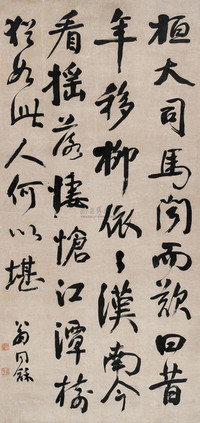 桓大司馬聞而歎曰昔
年移柳依〻漢南今
看搖落悽愴江潭樹
猶如此人何以堪
翁同龢